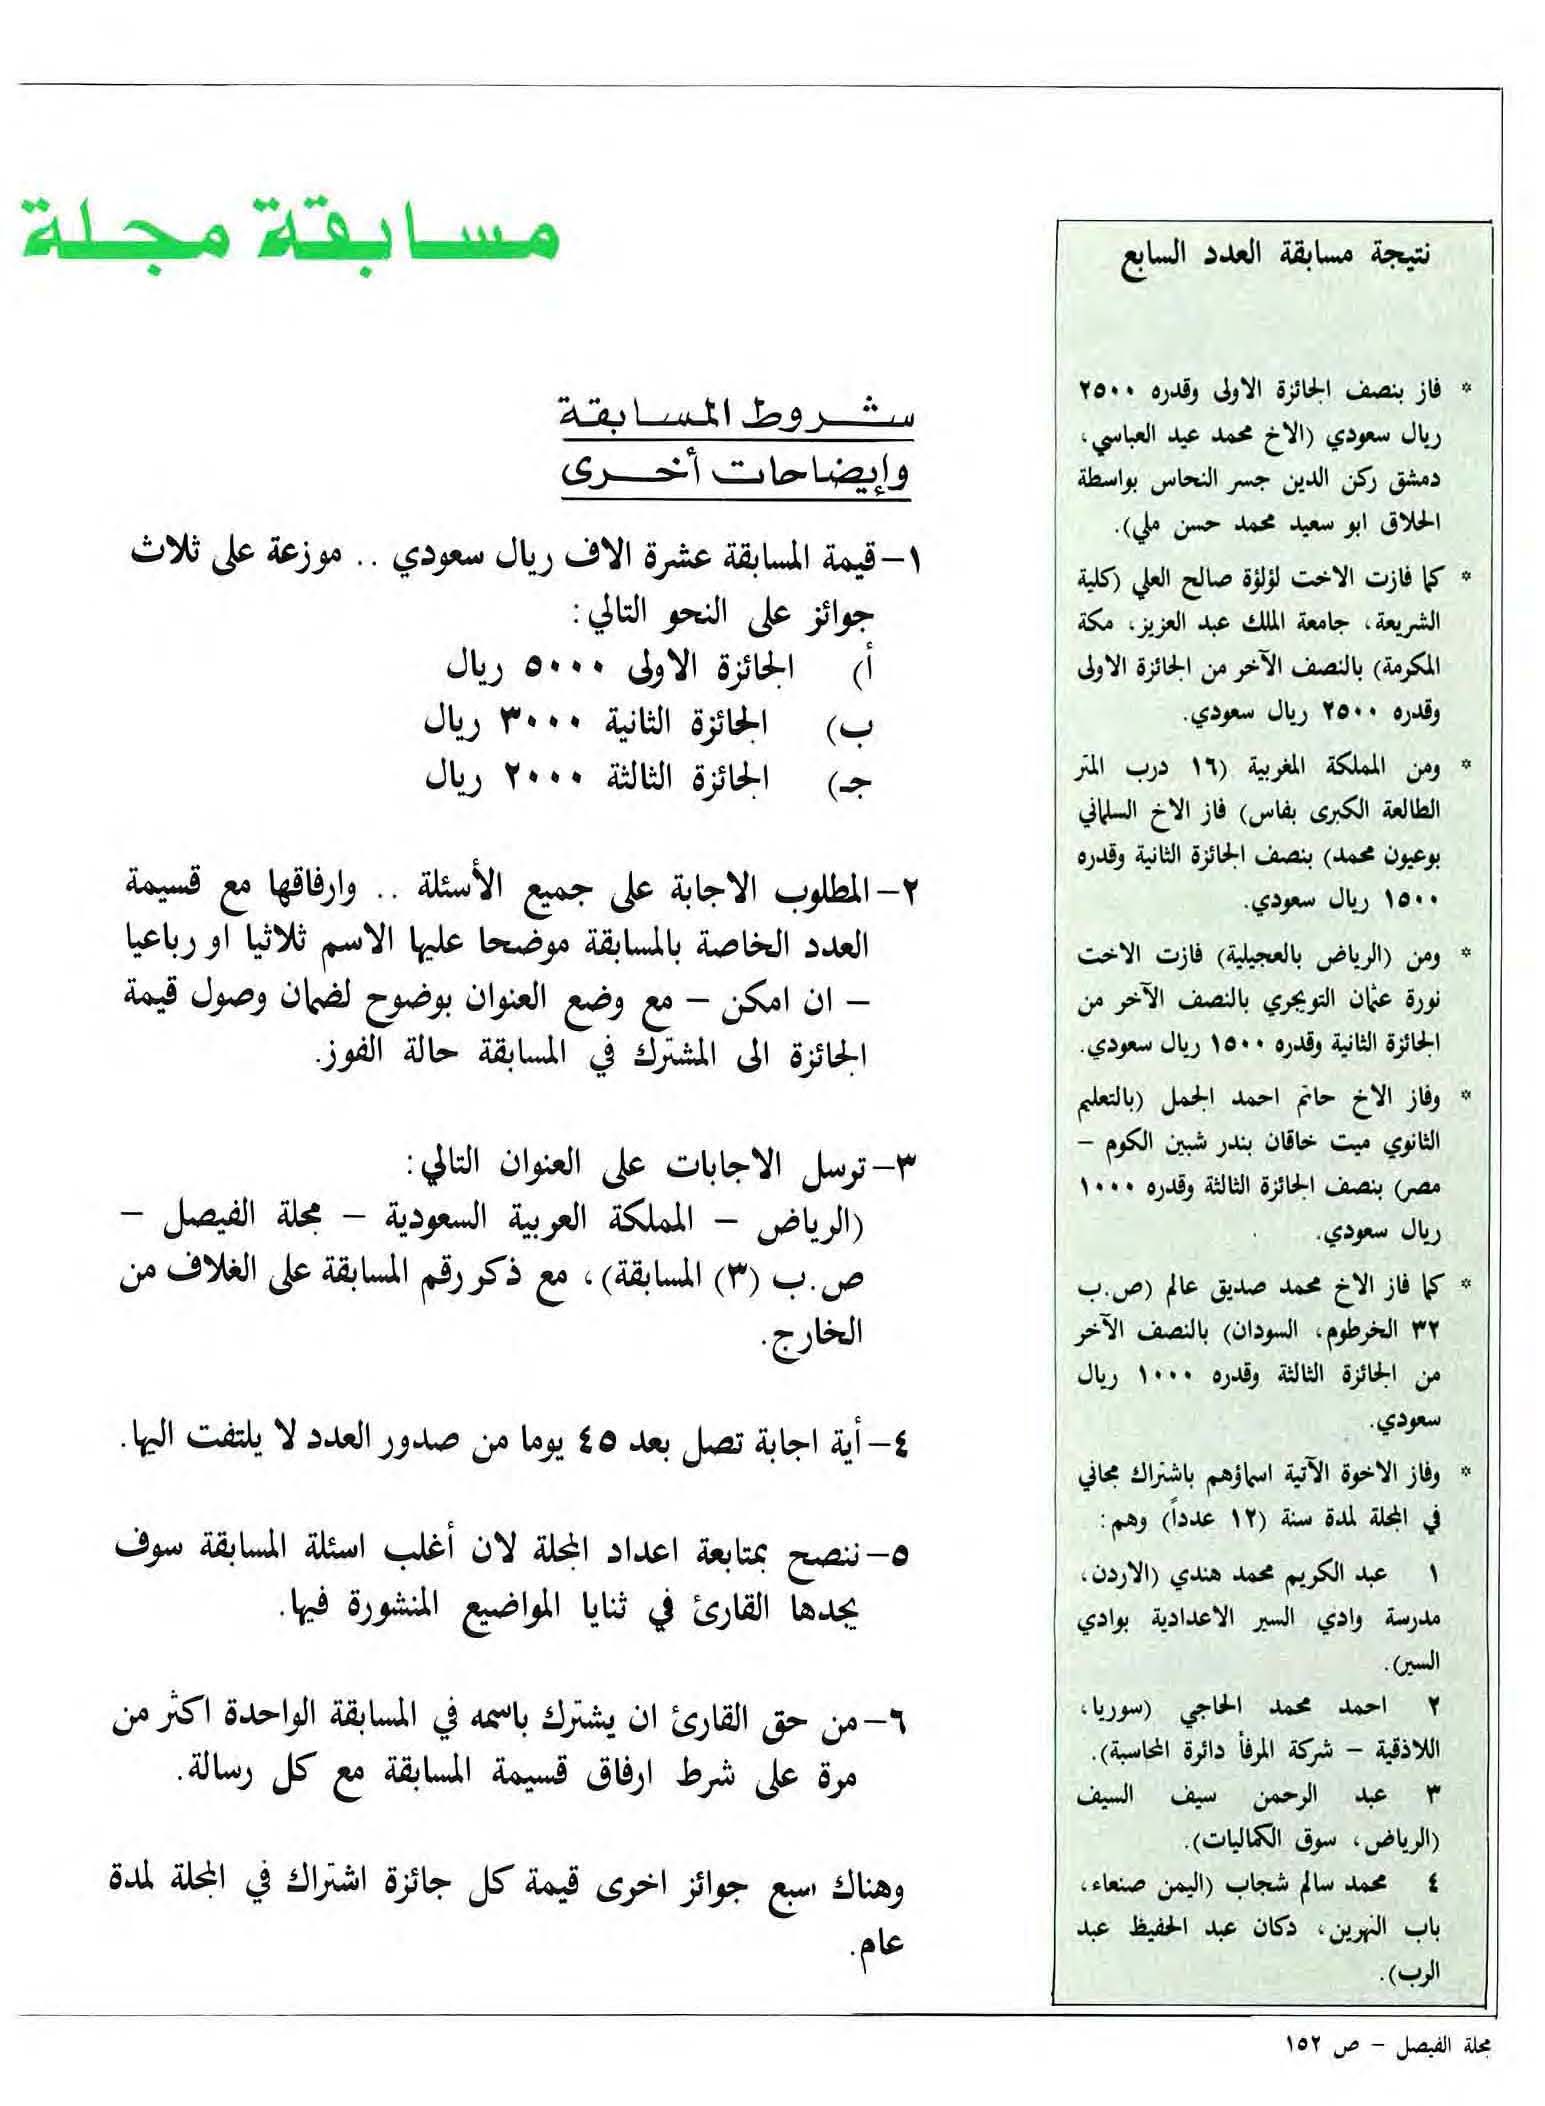 نتيجة مسابقة العدد السابع
* فاز بنصف الجائزة الاولى وقدره ٢٥٠٠
ريال سعودي (الاخ محمد عيد العباسي،
دمشق ركن الدين جسر النحاس بواسطة
الحلاق ابو سعيد محمد حسن ملي).
* كما فازت الاخت لؤلؤة صالح العلي (كلية
الشريعة، جامعة الملك عبد العزيز، مكة
المكرمة) بالنصف الآخر من الجائزة الاولى
وقدره ٢٥٠٠ ريال سعودي.
* ومن المملكة المغربية (١٦ درب المتر
الطالعة الكبرى بفاس) فاز الاخ السلماني
بوعيون محمد) بنصف الجائزة الثانية وقدره
١٥٠٠ ريال سعودي.
* ومن (الرياض بالعجيلية) فازت الاخت
نورة عثمان التويجري بالنصف الآخر من
الجائزة الثانية وقدره ١٥٠٠ ريال سعودي.
* وفاز الاخ حاتم احمد الجمل (بالتعليم
الثانوي ميت خاقان بندر شبين الكوم –
مصر) بنصف الجائزة الثالثة وقدره ١٠٠٠
ريال سعودي.
* كما فاز الاخ محمد صديق عالم (ص.ب
٣٢ الخرطوم، السودان) بالنصف الآخر
من الجائزة الثالثة وقدره ١٠٠٠ ريال
سعودي.
* وفاز الاخوة الآتية اسماؤهم باشتراك مجاني
في المجلة لمدة سنة (١٢ عدداً) وهم:
١ عبد الكريم محمد هندي (الاردن،
مدرسة وادي السير الاعدادية بوادي
السير).
٢ احمد محمد الحاجي (سوريا،
اللاذقية – شركة المرفأ دائرة المحاسبة).
٣ عبد الرحمن سيف السيف
(الرياض، سوق الكماليات).
٤ محمد سالم شجاب (اليمن صنعاء،
باب النهرين، دكان عبد الحفيظ عبد
الرب).
مسابقة مجلة
شروط المسابقة
وإيضاحات أخرى
١– قيمة المسابقة عشرة الاف ريال سعودي .. موزعة على ثلاث
جوائز على النحو التالي:
أ) الجائزة الاولى ٥٠٠٠ ريال
ب) الجائزة الثانية ٣٠٠٠ ريال
جـ) الجائزة الثالثة ٢٠٠٠ ريال
٢– المطلوب الاجابة على جميع الأسئلة .. وارفاقها مع قسيمة
العدد الخاصة بالمسابقة موضحا عليها الاسم ثلاثيا او رباعيا
– ان امكن – مع وضع العنوان بوضوح لضمان وصول قيمة
الجائزة الى المشترك في المسابقة حالة الفوز.
٣– ترسل الاجابات على العنوان التالي:
(الرياض – المملكة العربية السعودية – مجلة الفيصل –
ص.ب (٣) المسابقة)، مع ذكر رقم المسابقة على الغلاف من
الخارج.
٤– أية اجابة تصل بعد ٤٥ يوما من صدور العدد لا يلتفت اليها.
٥– ننصح بمتابعة اعداد المجلة لان أغلب اسئلة المسابقة سوف
يجدها القارئ في ثنايا المواضيع المنشورة فيها.
٦– من حق القارئ ان يشترك باسمه في المسابقة الواحدة اكثر من
مرة على شرط ارفاق قسيمة المسابقة مع كل رسالة.
وهناك سبع جوائز اخرى قيمة كل جائزة اشتراك في المجلة لمدة
عام.
مجلة الفيصل – ص ١٥٢